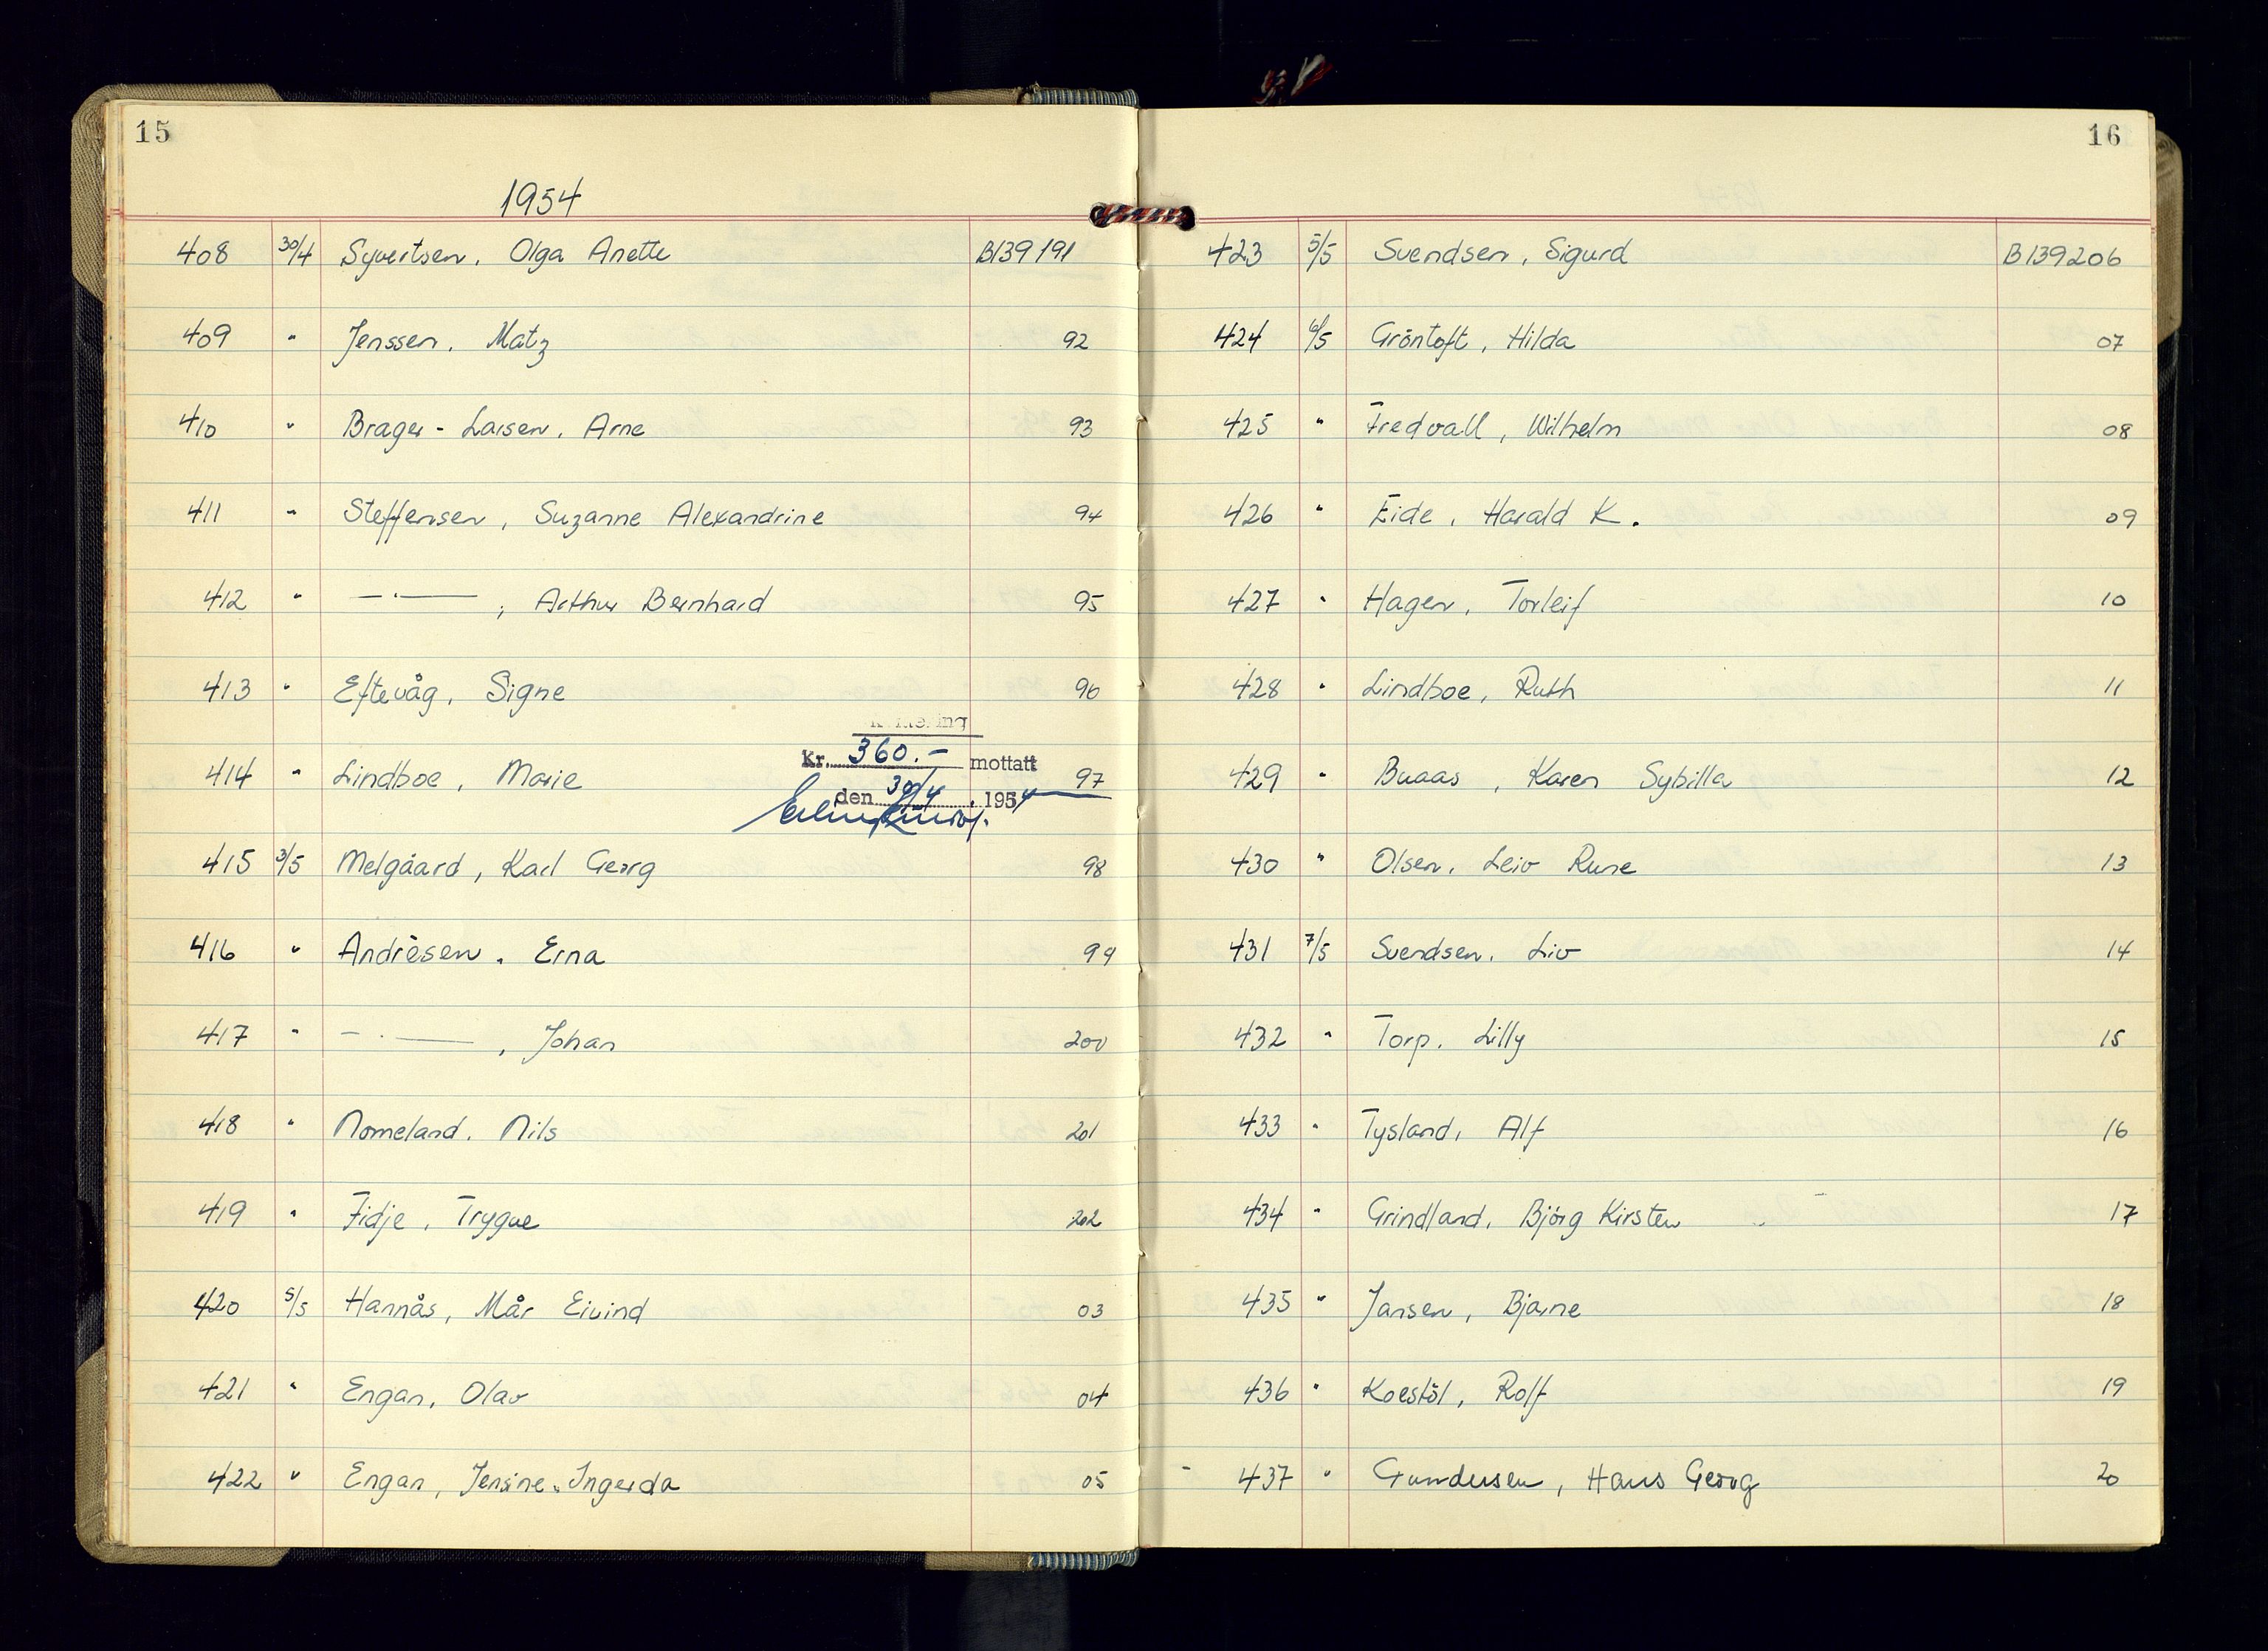 15
1954
408 30/4 Syvertsen, Olga Anette B139191
409 " Jenssen, Matz 92
410 " Brager-Larsen, Arne 93
411 " Steffensen, Suzanne Alexandrine 94
412 " —·— , Arthur Bernhard 95
413 " Eftevåg, Signe 96
Kr. 360.- mottatt
414 " Lindboe, Marie 97
den 30/4 1954
415 3/5 Melgåard, Karl Georg 98
416 " Andresen, Erna 99
417 " —·— , Johan 200
418 " Nomeland, Nils 201
419 " Fidje, Trygve 202
420 5/5 Hannås, Mår Eivind 03
421 " Engan, Olav 04
422 " Engan, Jensine Ingerda 05
16
423 5/5 Svendsen, Sigurd B139206
424 6/5 Gröntoft, Hilda 07
425 " Fredvall, Wilhelm 08
426 " Eide, Harald K. 09
427 " Hagen, Torleif 10
428 " Lindboe, Ruth 11
429 " Buaas, Karen Sybilla 12
430 " Olsen, Leiv Rune 13
431 7/5 Svendsen, Liv 14
432 " Torp, Lilly 15
433 " Tysland, Alf 16
434 " Grindland, Björg Kirsten 17
435 " Jansen, Bjarne 18
436 " Koestöl, Rolf 19
437 " Gundersen, Hans Georg 20